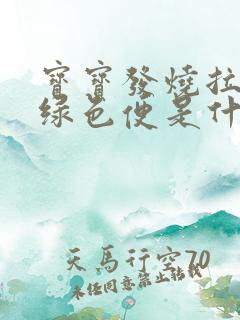 寶寶發燒拉
綠色便是什
天馬行空70
未經同意禁止轉載